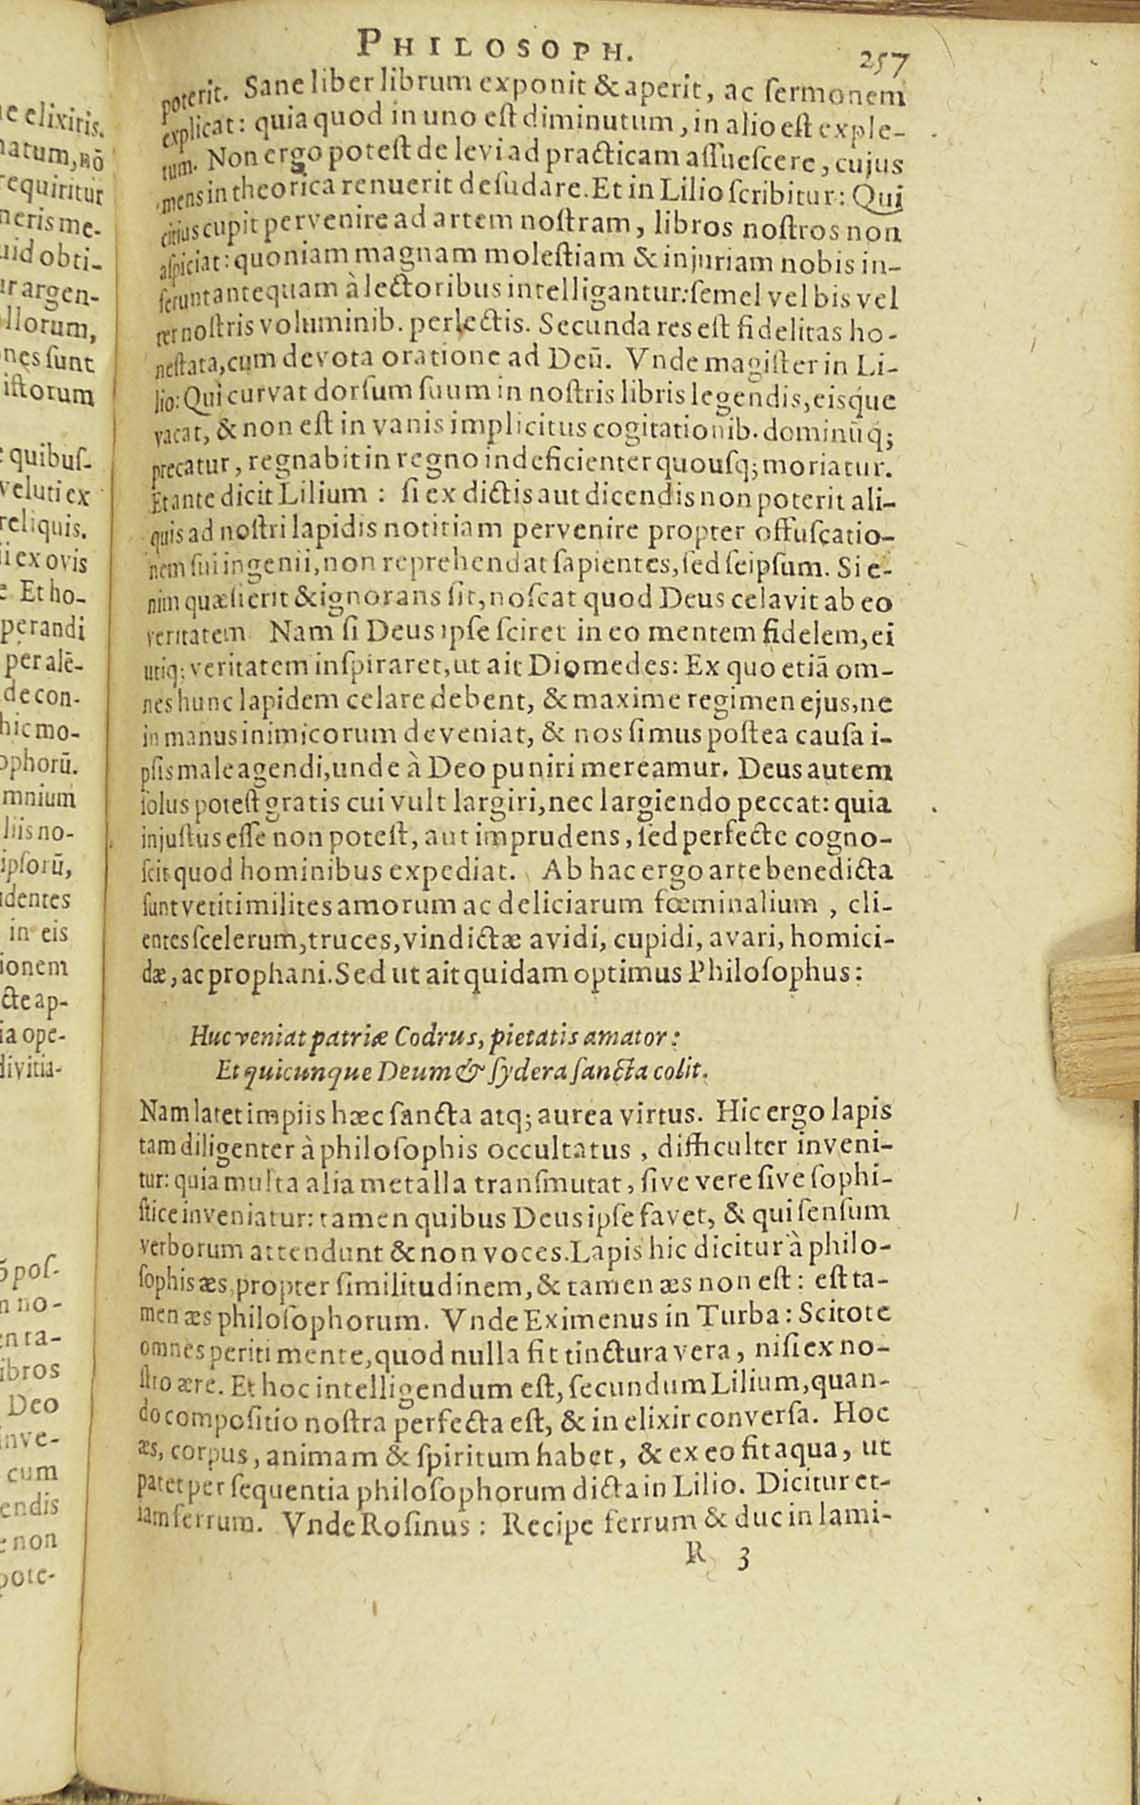 PHILOSOPH. 257
poterit. Sane liber librum exponit & aperit, ac ſermonem
explicat: quia quod in uno eſt diminutum, in alio eſt exple-
tum. Non ergo poteſt de levi ad practicam aſſueſcere, cujus
mens in theorica renuerit deſudare. Et in Lilio ſcribitur: Qui
citius cupit pervenire ad artem noſtram, libros noſtros non
aſpiciat: quoniam magnam moleſtiam & injuriam nobis in-
ferunt antequam à lectoribus intelligantur: ſemel vel bis vel
ter noſtris voluminib. perlectis. Secunda res eſt fidelitas ho-
neſtata, cum devota oratione ad Deū. Vnde magiſter in Li-
lio: Qui curvat dorſum ſuum in noſtris libris legendis, eisq́ue
vacat, & non eſt in vanis implicitus cogitationib. dominūq;
precatur, regnabit in regno indeficienter quouſq; moriatur.
Et ante dicit Lilium : ſi ex dictis aut dicendis non poterit ali-
quis ad noſtri lapidis notitiam pervenire propter offuſcatio-
nem ſui ingenii, non reprehendat ſapientes, ſed ſeipſum. Si e-
nim quæſierit & ignorans ſit, noſcat quod Deus celavit ab eo
veritatem Nam ſi Deus ipſe ſciret in eo mentem fidelem, ei
utiq; veritatem inſpiraret, ut ait Diomedes: Ex quo etiā om-
nes hunc lapidem celare debent, & maxime regimen ejus, ne
in manus inimicorum deveniat, & nos ſimus poſtea cauſa i-
pſis male agendi, unde à Deo puniri mereamur. Deus autem
ſolus poteſt gratis cui vult largiri, nec largiendo peccat: quia
injuſtus eſſe non poteſt, aut imprudens, ſed perfecte cogno-
ſcit quod hominibus expediat. Ab hac ergo arte benedicta
ſunt vetiti milites amorum ac deliciarum fœminalium, cli-
entes ſcelerum, truces, vindictæ avidi, cupidi, avari, homici-
dæ, ac prophani. Sed ut ait quidam optimus Philoſophus:
Huc veniat patriæ Codrus, pietatis amator:
Et quicunque Deum & ſydera ſancta colit.
Nam latet impiis hæc ſancta atq; aurea virtus. Hic ergo lapis
tam diligenter à philoſophis occultatus, difficulter inveni-
tur: quia multa alia metalla tranſmutat, ſive vere ſive ſophi-
ſtice inveniatur: tamen quibus Deus ipſe favet, & qui ſenſum
verborum attendunt & non voces. Lapis hic dicitur à philo-
ſophis æs, propter ſimilitudinem, & tamen æs non eſt: eſt ta-
men æs philoſophorum. Vnde Eximenus in Turba: Scitote
omnes periti mente, quod nulla fit tinctura vera, niſi ex no-
ſtro ære. Et hoc intelligendum eſt, ſecundum Lilium, quan-
do compoſitio noſtra perfecta eſt, & in elixir converſa. Hoc
æs, corpus, animam & ſpiritum habet, & ex eo fit aqua, ut
patet per ſequentia philoſophorum dicta in Lilio. Dicitur et-
iam ferrum. Vnde Roſinus : Recipe ferrum & duc in lami-
R 3
elixiris.
requiritur
neris me-
ur argen-
iſtorum
quibuſ-
veluti ex
reliquis.
ii ex ovis
Et ho-
perandi
per alē-
de con-
hic mo-
ophorū.
mnium
liis no-
ipſorū,
in eis
ionem
cte ap-
ia ope-
divitia-
poſ-
n no-
en ta-
ibros
Deo
inve-
cum
endis
non
pote-